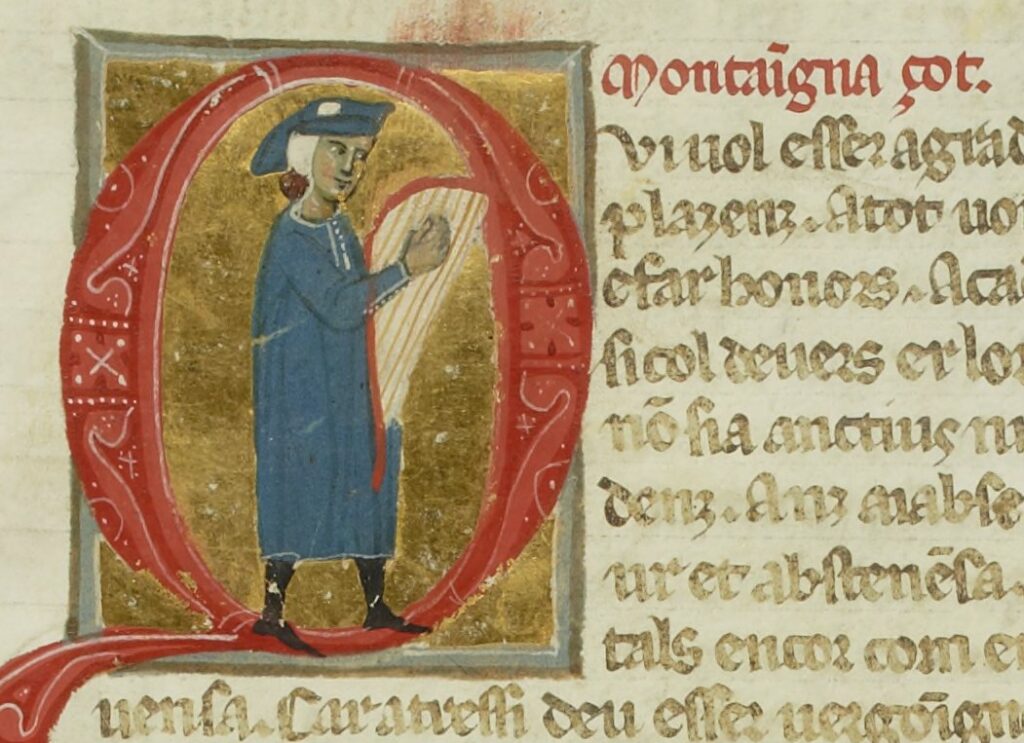 Montaīgna got.
Qvi uol esser agrad
plazenz. Atot uo
efar honors. Aca
si col deuers er lo
nō sia anctius ni
denz. Anz aiab se
ur et abstenēsa.
tals encor com e
uensa. Car atressi deu esser uergoīgn